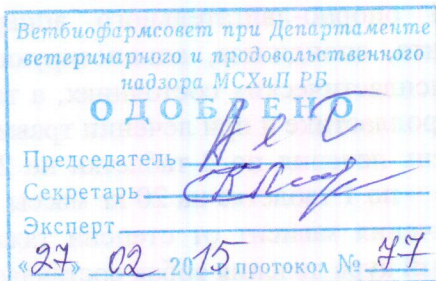 Ветбиофармсовет при Департаменте
ветеринарного и продовольственного
надзора МСХиП РБ
ОДОБРЕНО
Председатель
Секретарь
Эксперт
«27» 02 2015 протокол № 77